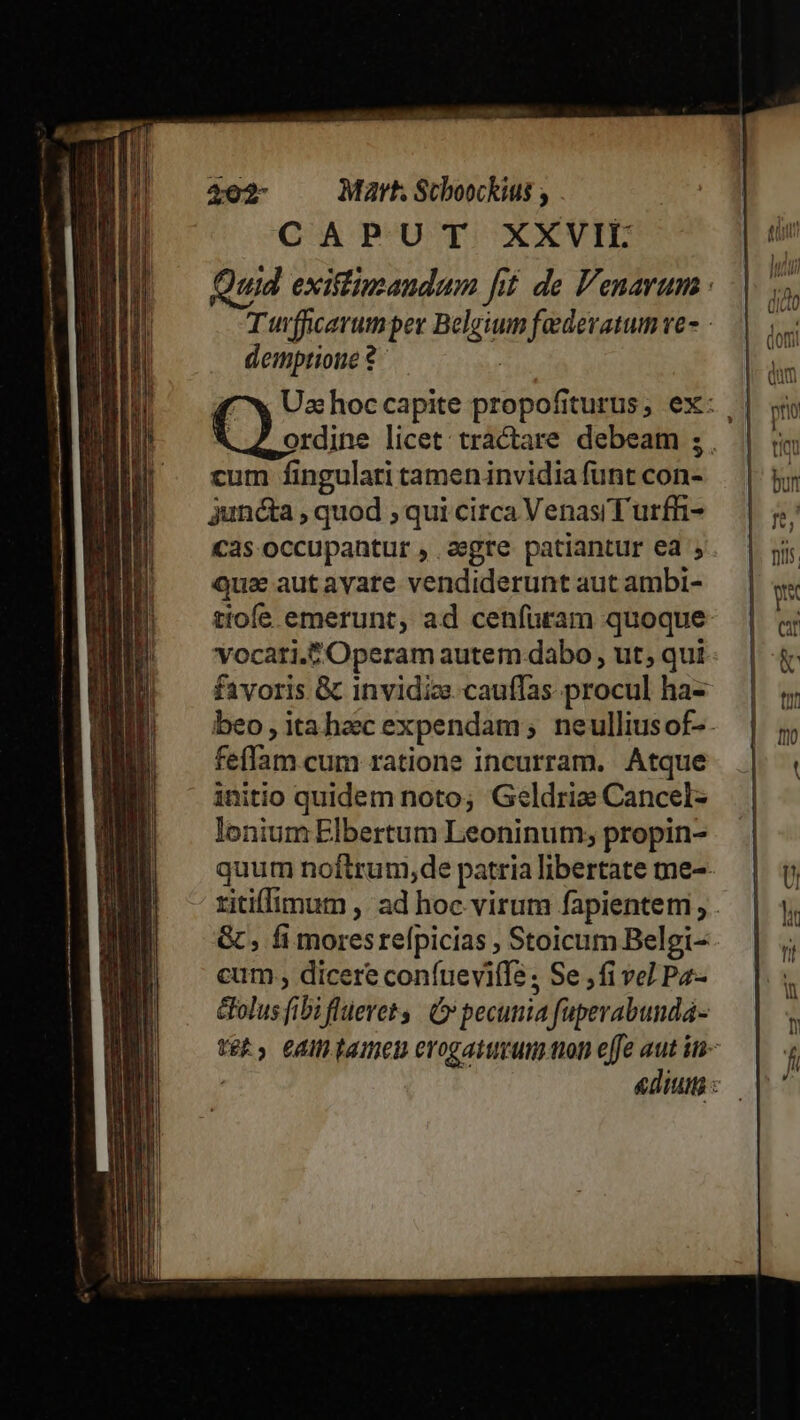 202 Mart. Schoockius,
CAPUT XXVII.
Quid existimandum sit de Venarum
Turfficarum per Belgium fœderatum re-
demptione?
QUæ hoc capite propositurus, ex
ordine licet tractare debeam;
cum singulari tamen invidia sunt con-
juncta, quod, qui circa Venas Turffi-
cas occupantur, ægre patiantur ea,
quæ aut avare vendiderunt aut ambi-
tiose emerunt, ad censuram quoque
vocari. Operam autem dabo, ut, qui
favoris & invidiæ caussas procul ha-
beo, ita hæc expendam, ne ullius of-
fessam cum ratione incurram. Atque
initio quidem noto, Geldriæ Cancel-
lonium Elbertum Leoninum, propin-
quum nostrum, de patria libertate me-
ritissimum, ad hoc virum sapientem,
&, si mores respicias, Stoicum Belgi-
cum, dicere consuevisse; Se, si vel Pa-
ctolus sibi flueret, & pecunia superabunda-
ret, eam tamen erogaturum non esse aut in
edium